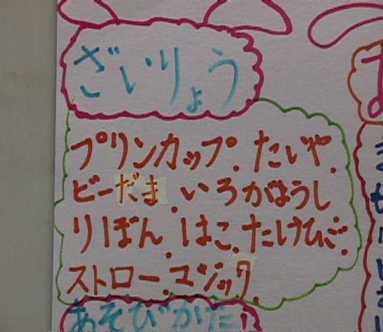 ざいりょう
プリンカップ．たいや．
ビーだま．いろがようし
りぼん．はこ．たけひご．
ストロー．コジック．
あそびかた